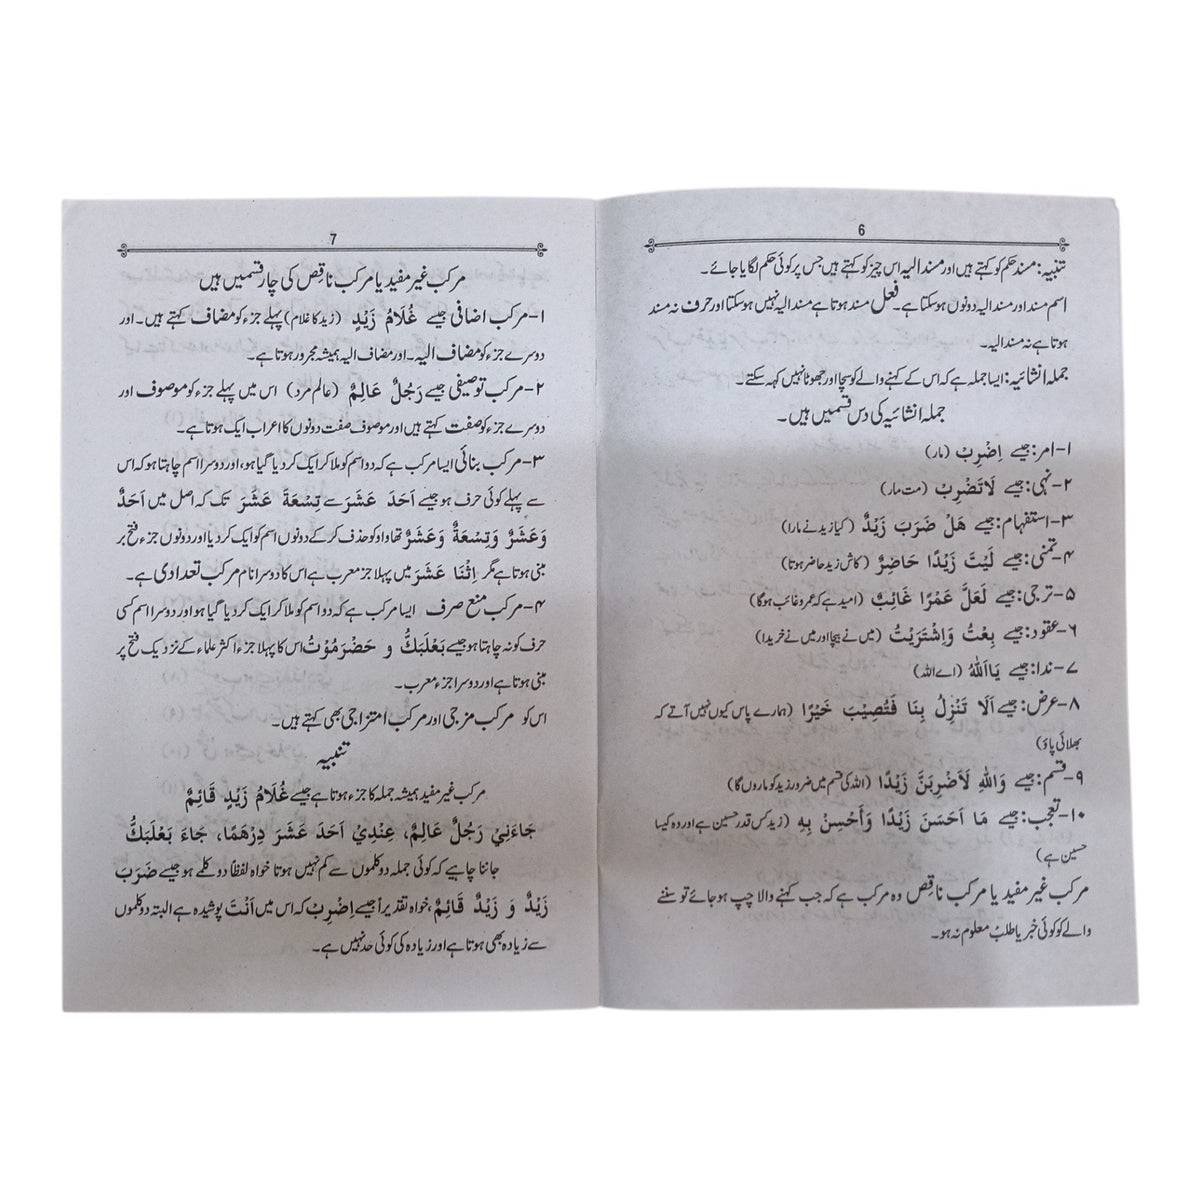 6
تنبیہ: مسند حکم کو کہتے ہیں اور مسند الیہ اس چیز کو کہتے ہیں جس پر کوئی حکم لگایا جائے۔
اسم مسند اور مسند الیہ دونوں ہو سکتا ہے۔ فعل مسند ہوتا ہے مسند الیہ نہیں ہو سکتا اور حرف نہ مسند
ہوتا ہے نہ مسند الیہ۔
جملہ انشائیہ: ایسا جملہ ہے کہ اس کے کہنے والے کو سچا اور جھوٹا نہیں کہہ سکتے۔
جملہ انشائیہ کی دس قسمیں ہیں۔
۱-امر: جیسے اِضْرِبْ (مار)
۲-نہی: جیسے لَاتَضْرِبْ (مت مار)
۳-استفہام: جیسے هَلْ ضَرَبَ زَيْدٌ (کیا زید نے مارا)
۴-تمنی: جیسے لَيْتَ زَيْدًا حَاضِرٌ (کاش زید حاضر ہوتا)
۵-ترجی: جیسے لَعَلَّ عَمْرًا غَائِبٌ (امید ہے کہ عمرو غائب ہوگا)
۶-عقود: جیسے بِعْتُ وَاِشْتَرَيْتُ (میں نے بیچا اور میں نے خریدا)
۷-ندا: جیسے يَااَللهُ (اے اللہ)
۸-عرض: جیسے اَلَا تَنْزِلُ بِنَا فَتُصِيْبَ خَيْرًا (ہمارے پاس کیوں نہیں آتے کہ
بھلائی پاؤ)
۹-قسم: جیسے وَاللهِ لَاَضْرِبَنَّ زَيْدًا (اللہ کی قسم میں ضرور زید کو ماروں گا)
۱۰-تعجب: جیسے مَا اَحْسَنَ زَيْدًا وَأَحْسِنْ بِهِ (زید کس قدر حسین ہے اور وہ کیسا
حسین ہے)
مرکب غیر مفید یا مرکب ناقص وہ مرکب ہے کہ جب کہنے والا چپ ہو جائے تو سننے
والے کو کوئی خبر یا طلب معلوم نہ ہو۔
7
مرکب غیر مفید یا مرکب ناقص کی چار قسمیں ہیں
۱-مرکب اضافی جیسے غُلَامُ زَيْدٍ (زید کا غلام) پہلے جزء کو مضاف کہتے ہیں۔ اور
دوسرے جزء کو مضاف الیہ۔ اور مضاف الیہ ہمیشہ مجرور ہوتا ہے۔
۲-مرکب توصیفی جیسے رَجُلٌ عَالِمٌ (عالم مرد) اس میں پہلے جزء کو موصوف اور
دوسرے جزء کو صفت کہتے ہیں اور موصوف صفت دونوں کا اعراب ایک ہوتا ہے۔
۳-مرکب بنائی ایسا مرکب ہے کہ دو اسم کو ملا کر ایک کر دیا گیا ہو، اور دوسرا اسم چاہتا ہو کہ اس
سے پہلے کوئی حرف ہو جیسے اَحَدَ عَشَرَ سے تِسْعَةَ عَشَرَ تک کہ اصل میں اَحَدٌ
وَعَشَرٌ وَتِسْعَةٌ وَعَشَرٌ تھا واو کو حذف کر کے دونوں اسم کو ایک کر دیا اور دونوں جزء فتح پر
مبنی ہوتا ہے مگر اِثْنَا عَشَرَ میں پہلا جزء معرب ہے اس کا دوسرا نام مرکب تعدادی ہے۔
۴-مرکب منع صرف ایسا مرکب ہے کہ دو اسم کو ملا کر ایک کر دیا گیا ہو اور دوسرا اسم کسی
حرف کو نہ چاہتا ہو جیسے بَعْلَبَكُّ و حَضْرَمُوْتُ اس کا پہلا جزء اکثر علماء کے نزدیک فتح پر
مبنی ہوتا ہے اور دوسرا جزء معرب۔
اس کو مرکب مزجی اور مرکب امتزاجی بھی کہتے ہیں۔
تنبیہ
مرکب غیر مفید ہمیشہ جملہ کا جزء ہوتا ہے جیسے غُلَامُ زَيْدٍ قَائِمٌ
جَاءَنِيْ رَجُلٌ عَالِمٌ، عِنْدِيْ اَحَدَ عَشَرَ دِرْهَمًا، جَاءَ بَعْلَبَكُّ
جاننا چاہیے کہ کوئی جملہ دو کلموں سے کم نہیں ہوتا خواہ لفظاً دو کلمے ہو جیسے ضَرَبَ
زَيْدٌ و زَيْدٌ قَائِمٌ، خواہ تقدیراً جیسے اِضْرِبْ کہ اس میں اَنْتَ پوشیدہ ہے البتہ دو کلموں
سے زیادہ بھی ہوتا ہے اور زیادہ کی کوئی حد نہیں ہے۔